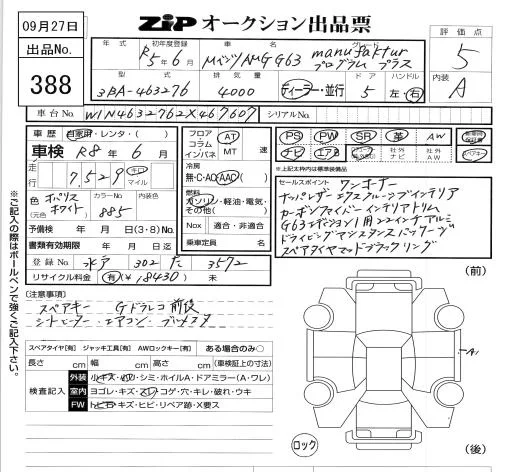 09月27日
出品No.
388
ZIP オークション出品票
評価点
5
内装
A
年式 初年度登録 車名 グレード
R5年6月 Mベンツ AMG G63 manufaktur プログラム プラス
型式 排気量 ドア ハンドル
3BA-463276 4000 ディーラー・並行 5 左・右
車台No. W1N4632762X467607 シリアルNo.
車歴 自家用・レンタ・( )
車検 R8年6月
走行 7,529 キロ マイル
色 オパリスホワイト (元色) カラーNo 885 内装色
予備検 年 月 日(3・8)No.
書類有効期限 年 月 日迄
登録No 水戸 302 た 3572
リサイクル料金 有(¥18430) 未
フロア コラム インパネ AT MT 速
冷房 無・C・AC・AAC( )
燃料 ガソリン・軽油・電気・その他( )
Nox 適合・非適合
乗車定員 名
PS PW SR 革 AW
ナビ エアB 社外ナビ 社外AW スペアキー
※上記太枠内は標準装備品
セールスポイント ワンオーナー
ナッパレザーエクスクルーシブインテリア
カーボンファイバーインテリアトリム
G63エディション1用22インチアルミ
ドライビングアシスタンスパッケージ
スペアタイヤマッドブラックリング
※ご記入の際はボールペンで強くご記入下さい。
(注意事項)
スペアキー Gドラレコ前後
シートヒーター・エアコン・
スペアタイヤ【有】 ジャッキ工具【有】 AWロックキー【有】 ある場合のみ○
長さ cm 幅 cm 高さ cm (車検証上の寸法)
検査記入
外装 小キズ・凹・シミ・ホイルA・ドアミラー(A・ワレ)
室内 ヨゴレ・キズ・スレ・コゲ・穴・キレ・破れ・ウキ
FW トビ石・キズ・ヒビ・リペア跡・X要ス
(前)
A
ロック
(後)